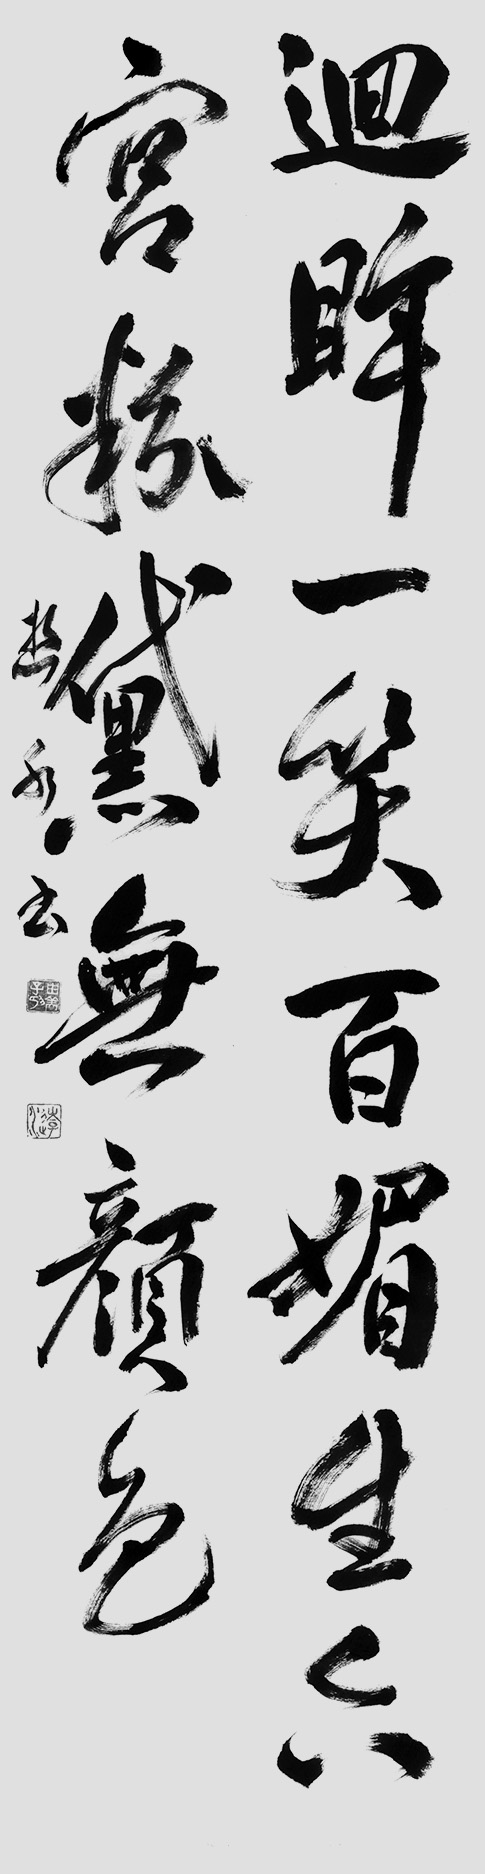 迴眸一笑百媚生六
宮粉黛無顏色
書